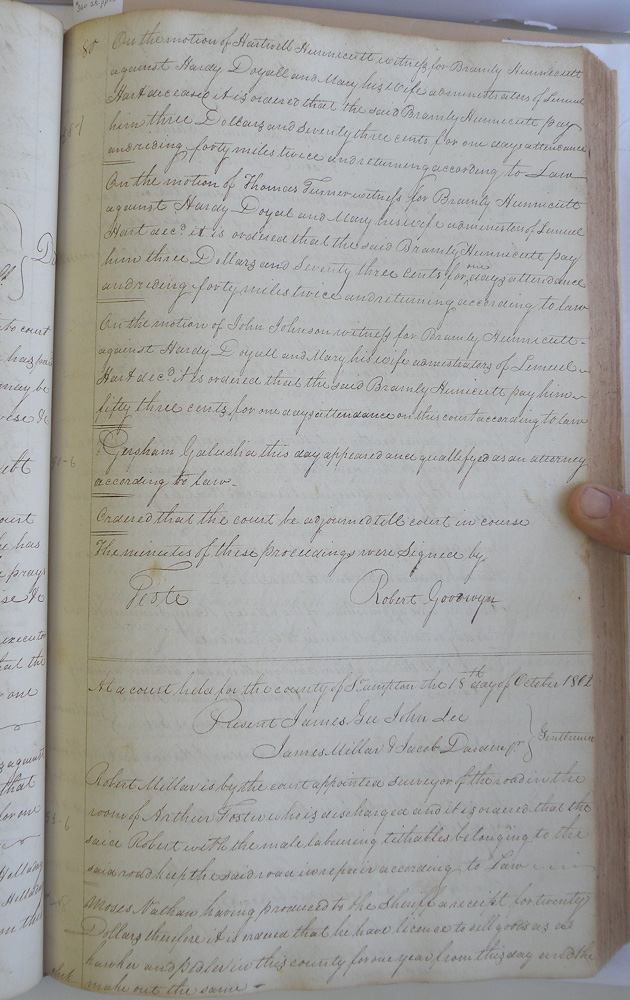 80
On the motion of Hartwell Hunnicutt witness for Bramly Hunnicutt
against Hardy Doyall and Mary his wife administrators of Lemuel
Hart deceased it is ordered that the said Bramly Hunnicutt pay
him three Dollars and Seventy three cents for one days attendance
and riding forty miles twice and returning according to Law
On the motion of Thomas Turner witness for Bramly Hunnicutt
against Hardy Doyal and Mary his wife administors of Lemuel
Hart decd it is ordered that the said Bramly Hunnicutt pay
him three Dollars and Seventy three Cents for one days attendance
and riding forty miles twice and returning according to law
On the motion of John Johnson witness for Bramly Hunnicutt
against Hardy Doyall and Mary his wife admistrators of Lemuel
Hart decd it is ordered that the said Bramly Hunicutt pay him
fifty three cents for one days attendance on this court according to law
Gersham Galusha this day appeared and qualifyed as an attorney
according to law
Ordered that the court be adjourned till court in course
The minutes of these proceedings were Signed by
Teste
Robert Goodwyn
At a court held for the county of So ampton the 18th day of October 1802
Present James Gee John Lee
James Millar & Jacob Darden jr
Gentlemen
Robert Millar is by the court appointed surveyor of the road in the
room of Arthur Foster who is discharged and it is ordered that the
said Robert with the male labouring tithables belonging to the
said road keep the said road in repair according to Law
Moses Nathan having produced to the Sheriff a receipt for twenty
Dollars therefore it is ordered that he have license to sell goods as a
hawker and pedler in this county for one year from this day and the
make out the same